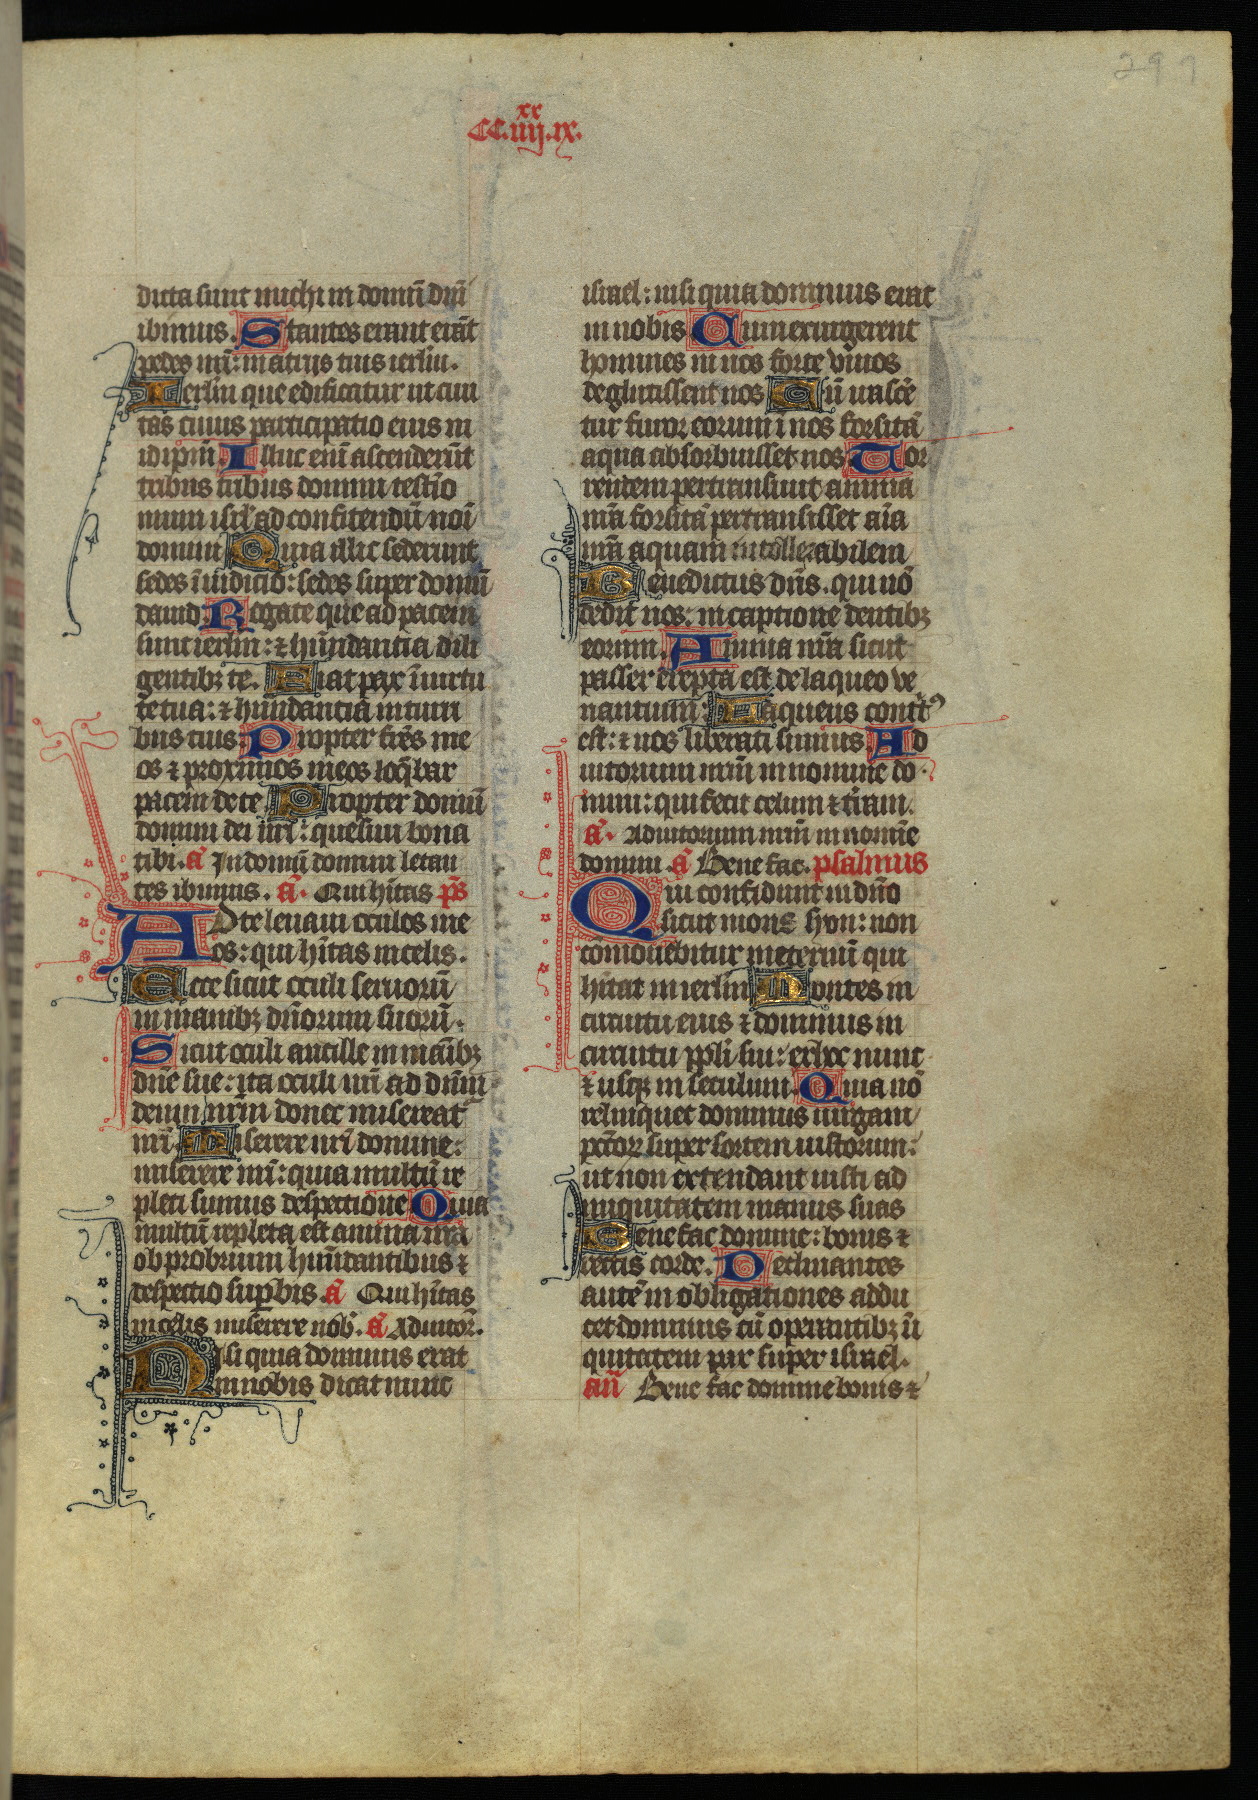 291
xx
CC.iiij.ix.
dicta sunt michi in domū dn̄i
ibimus. Stantes erant erāt
pedes nr̄i: in atrijs tuis ierlm̄.
Ierlm̄ que edificatur ut ciui
tas cuius participatio eius in
idip̄m. Illuc eni᷒ ascenderūt
tribus tribus domini testīo
nium isrl̄ ad confitendū noī
domini Quia illic sederunt
sedes ī iudicio: sedes super domū
dauid Rogate que ad pacem
sunt ierlm̄: ⁊ hūndantia dili
gentibꝫ te. Fiat pax ī uirtu
te tua: ⁊ hūndantia in turri
bus tuis. Propter fr̄es me
os ⁊ proximos meos loq̄bar
pacem de te Propter domū
domini dei nr̄i: quesiui bona
tibi. a᷒ In domū domini letan
tes ibimus. a᷒. Qui hītas p̄s
Ad te leuaui oculos me
os: qui hītas in celis.
Ecce sicut oculi seruorū
in manibꝫ dn̄orum suorū.
Sicut oculi ancille in manibꝫ
dn̄e sue: ita oculi nr̄i ad dn̄m
deum nr̄m donec misereat᷒
nr̄i Miserere nr̄i domine:
miserere nr̄i: quia multū re
pleti sumus despectione Quia
multū repleta est anima nr̄a
obprobrium hūndantibus ⁊
despectio suꝑbis. a᷒ Qui hītas
in celis miserere nob̄. a᷒ Adiutor̄.
Nisi quia dominus erat
in nobis dicat nunc
israel: nisi quia dominus erat
in nobis Cum exurgerent
homines in nos forte uiuos
deglutissent nos Cū irasce᷒
tur furor eorum ī nos forsitā
aqua absorbuisset nos Tor
rentem pertransiuit anima
nr̄a forsitā pertransisset aīa
nr̄a aquam intollerabilem
Benedictus dn̄s. qui nō
dedit nos: in captione dentibꝫ
eorum. Anima nr̄a sicut
passer erepta est de laqueo ve
nantium: Laqueus cont᷒tꝰ
est: ⁊ nos liberati sumus Ad
iutorium nr̄m in nomine do
mini: qui fecit celum ⁊ tr̄am.
a᷒. Adiutorium nr̄m in nomīe
domini. a᷒ Bene fac. psalmus
Qui confidunt in dn̄o
sicut mons syon: non
cōmouebitur in eternū qui
hītat in ierlm̄ Montes in
circuitu eius ⁊ dominus in
circuitu ppl̄i sui: ex hoc nunc
⁊ usqꝫ in seculum. Quia nō
relinquet dominus uirgam
pcc̄orꝝ super sortem iustorum:
ut non extendant iusti ad
iniquitatem manus suas
Bene fac domine: bonis ⁊
rectis corde. Declinantes
autē in obligationes addu
cet dominus cū operantibꝫ ī
quitatem pax super israel.
an̄ Bene fac domine bonis ⁊